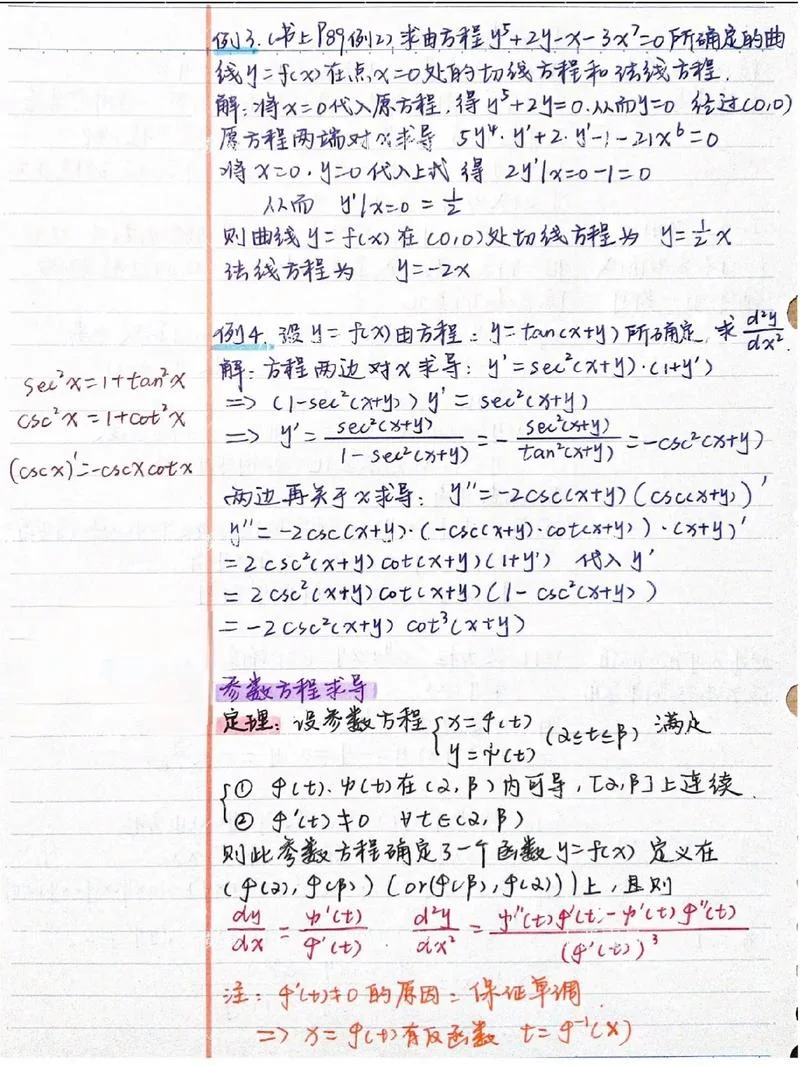 例3.(书上P89例2) 求由方程 y⁵+2y-x-3x⁷=0 所确定的曲
线y=f(x) 在点x=0处的切线方程和法线方程.
解:将x=0代入原方程,得 y⁵+2y=0.从而y=0 经过(0,0)
原方程两端对x求导 5y⁴·y'+2·y'-1-21x⁶=0
将x=0,y=0代入上式 得 2y'|x=0-1=0
从而 y'|x=0=1/2
则曲线y=f(x)在(0,0)处切线方程为 y=1/2x
法线方程为 y=-2x
例4.设y=f(x)由方程:y=tan(x+y)所确定,求d²y/dx².
解:方程两边对x求导:y'=sec²(x+y)·(1+y')
=>(1-sec²(x+y))y'=sec²(x+y)
=> y'=sec²(x+y)/1-sec²(x+y)=-sec²(x+y)/tan²(x+y)=-csc²(x+y)
两边再关于x求导:y''=-2csc(x+y)(csc(x+y))'
y''=-2csc(x+y)·(-csc(x+y)·cot(x+y))·(x+y)'
=2csc²(x+y)cot(x+y)(1+y') 代入y'
=2csc²(x+y)cot(x+y)(1-csc²(x+y))
=-2csc²(x+y)cot³(x+y)
sec²x=1+tan²x
csc²x=1+cot²x
(cscx)'=-cscxcotx
参数方程求导
定理:设参数方程{x=φ(t) y=ψ(t) (α≤t≤β) 满足
①φ(t).ψ(t)在(α,β)内可导,[α,β]上连续.
②φ'(t)≠0 ∀t∈(α,β)
则此参数方程确定了一个函数y=f(x) 定义在
(φ(α),φ(β))(or(φ(β),φ(α)))上,且则
dy/dx=ψ'(t)/φ'(t). d²y/dx²=ψ''(t)φ'(t)-ψ'(t)φ''(t)/(φ'(t))³
注:φ'(t)≠0的原因:保证单调
=> x=φ(t)有反函数 t=φ⁻¹(x)